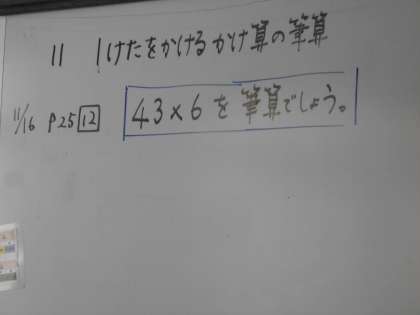 11 1けたをかけるかけ算の筆算
11/16 P25 12 43×6を筆算でしょう。